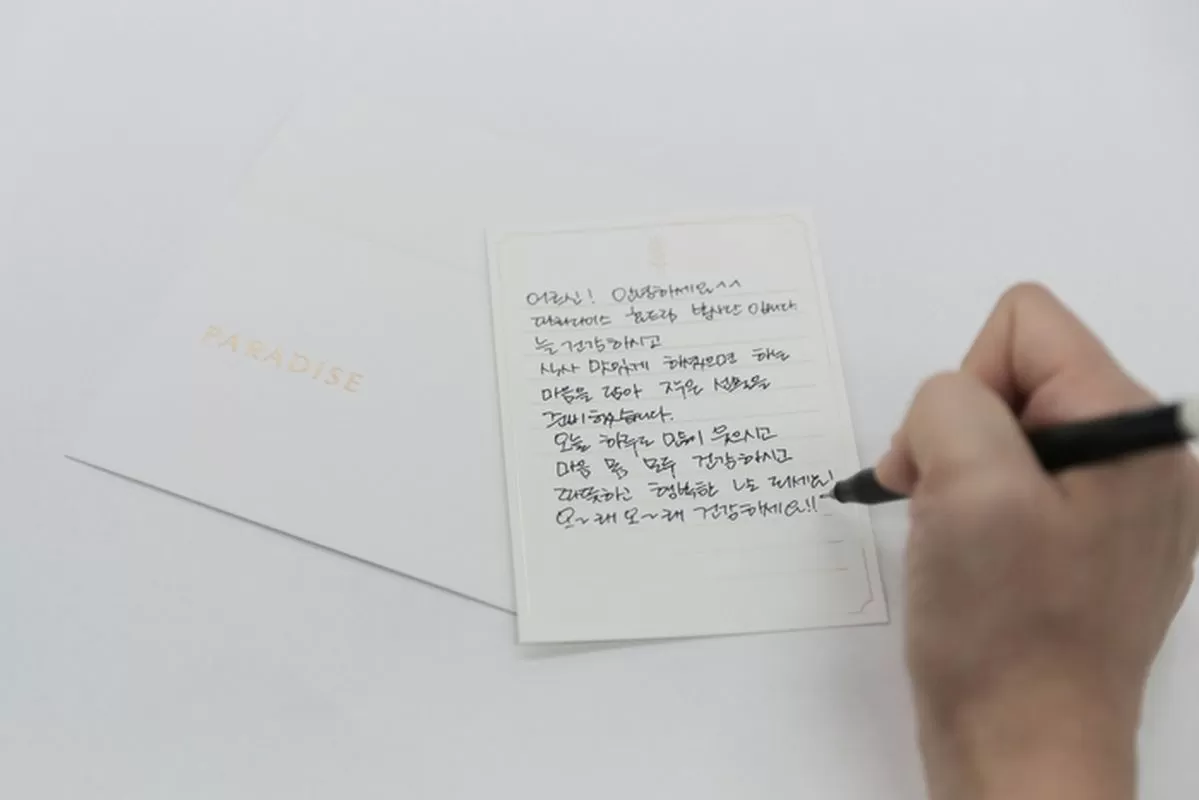 PARADISE
어르신! 안녕하세요^^
파라다이스 봉사단 입니다.
늘 건강하시고
식사 맛있게 하셨으면 하는
마음을 담아 작은 선물을
준비했습니다.
오늘 하루도 많이 웃으시고
마음 몸, 모두 건강하시고
따뜻하고 행복한 되세요!
오~래 오~래 건강하세요!!